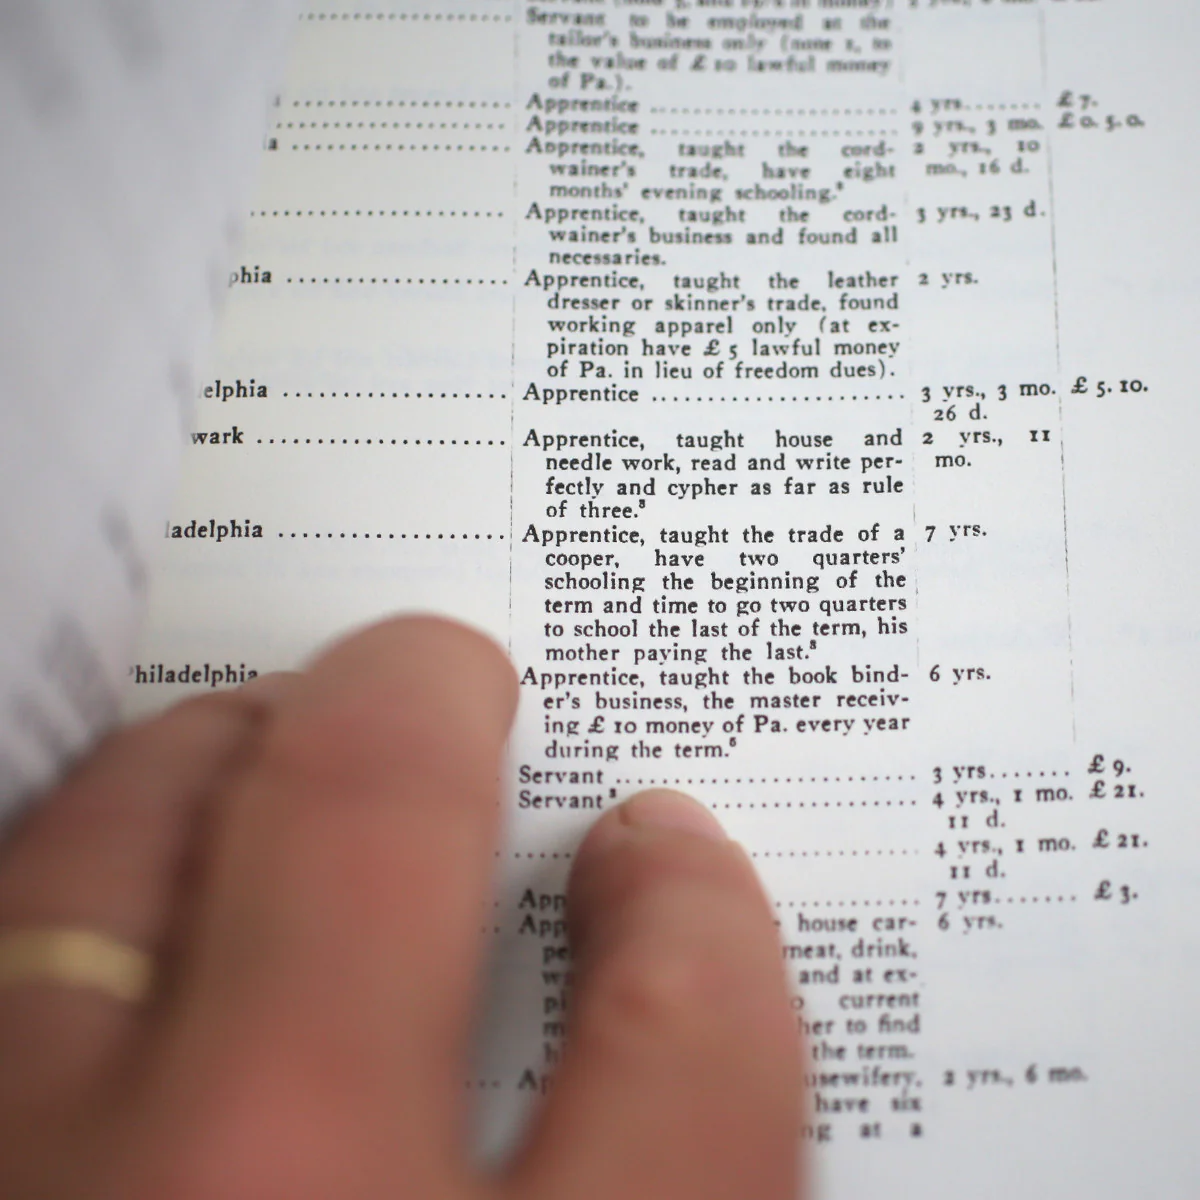 Servant to be employed at the
tailor's business only (note 1, to
the value of £ 10 lawful money
of Pa.).
Apprentice 4 yrs. £ 7.
Apprentice 9 yrs., 3 mo. £ 0. 5. 0.
a Apprentice, taught the cord- 2 yrs., 10
wainer's trade, have eight mo., 16 d.
months' evening schooling.
Apprentice, taught the cord- 3 yrs., 23 d.
wainer's business and found all
necessaries.
phia Apprentice, taught the leather 2 yrs.
dresser or skinner's trade, found
working apparel only (at ex-
piration have £ 5 lawful money
of Pa. in lieu of freedom dues).
elphia Apprentice 3 yrs., 3 mo. £ 5. 10.
26 d.
wark Apprentice, taught house and 2 yrs., 11
needle work, read and write per- mo.
fectly and cypher as far as rule
of three.³
adelphia Apprentice, taught the trade of a 7 yrs.
cooper, have two quarters'
schooling the beginning of the
term and time to go two quarters
to school the last of the term, his
mother paying the last.³
hiladelphia Apprentice, taught the book bind- 6 yrs.
er's business, the master receiv-
ing £ 10 money of Pa. every year
during the term.⁵
Servant 3 yrs. £ 9.
Servant 4 yrs., 1 mo. £ 21.
11 d.
4 yrs., 1 mo. £ 21.
11 d.
App 7 yrs. £ 3.
App house car- 6 yrs.
pe meat, drink,
and at ex-
pi current
her to find
the term.
Ap usewifery, 2 yrs., 6 mo.
have six
ng at a